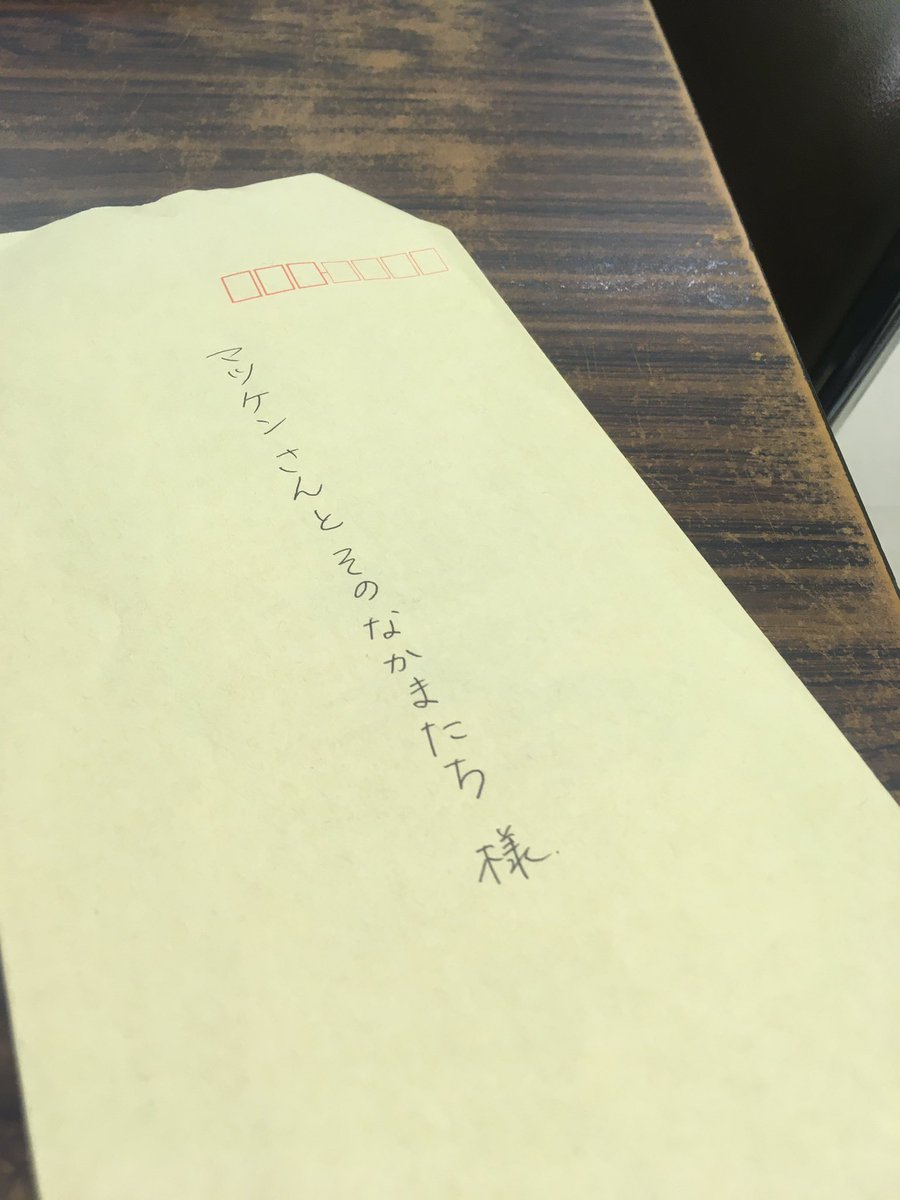 マツケンさんとそのなかまたち 様